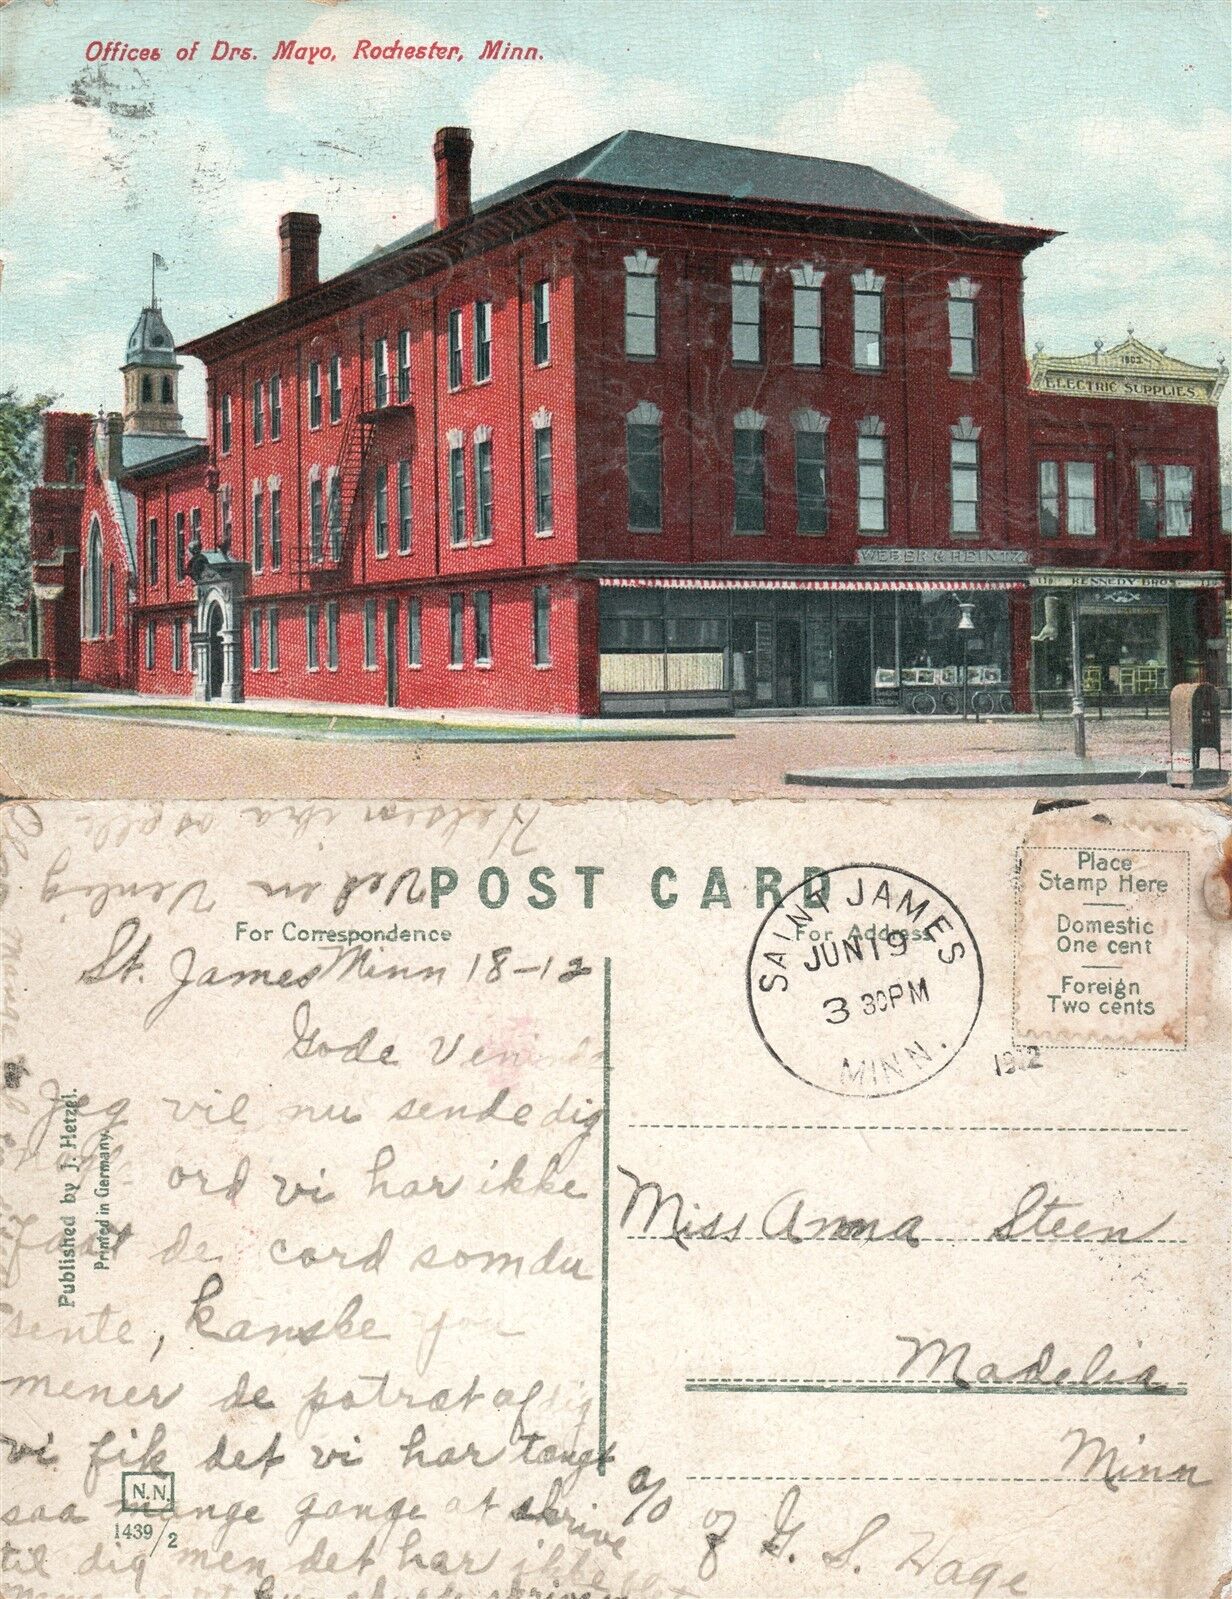 Offices of Drs. Mayo, Rochester, Minn.
1902
ELECTRIC SUPPLIES
WEBER & HEINTZ
110 KENNEDY BROS
Helsen ibra os alle
Ved in Venlig
POST CARD
For Correspondence
For Address
Place
Stamp Here
Domestic
One cent
Foreign
Two cents
SAINT JAMES
JUN 19
3 30PM
MINN.
1912
St. James Minn 18-12
Gode Veninde
Jeg vil nu sende dig
ord vi har ikke
faat de card som du
sente, kanske you
mener de potræt af dig
vi fik det vi har tængt
saa mange gange at skrive
til dig men det har ikke
Published by J. Hetzel.
Printed in Germany.
N.N.
1439/2
Miss Anna Steen
Madelia
Minn
c/o of G. S. Hage